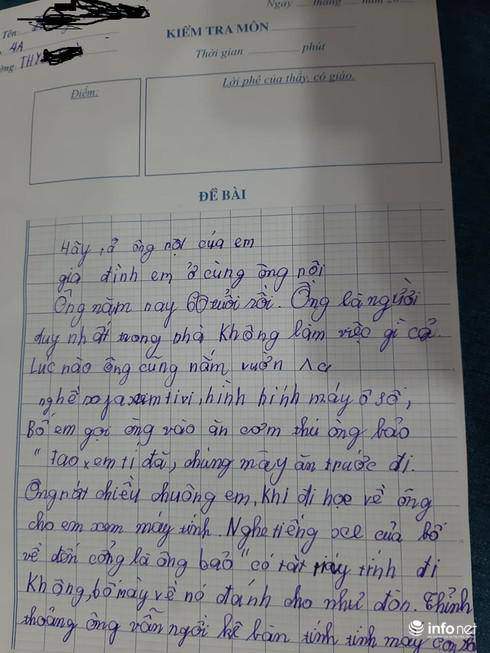 Ngày tháng năm 20
Tên
4A
THY
KIỂM TRA MÔN
Thời gian phút
Điểm:
Lời phê của thầy, cô giáo.
ĐỀ BÀI
Hãy tả ông nội của em
gia đình em ở cùng ông nội
Ông năm nay 60 tuổi rồi. Ông là người
duy nhất trong nhà không làm việc gì cả
Luc nào ông cũng nằm vườn ra
nghế xem tivi, hình hình máy ô số,
Bố em gọi ông vào ăn cơm thì ông bảo
" Tao xem tí đã, chung mày ăn trước đi.
Ông rất chiều chuông em, khi đi học về ông
cho em xem máy tính. Nghe tiếng xe của bố
về đến cổng là ông bảo " có tắt máy tính đi
không, bố mày về nó đánh cho như đòn. Thỉnh
thoảng ông vẫn ngồi kê bàn tính tính mấy con
infonet